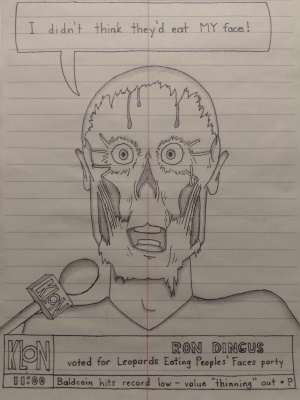 I didn't think they'd eat MY face!
KLON
KLON
RON DINGUS
voted for Leopards Eating Peoples' Faces party
11:00
Baldcoin hits record low - value "thinning" out • P